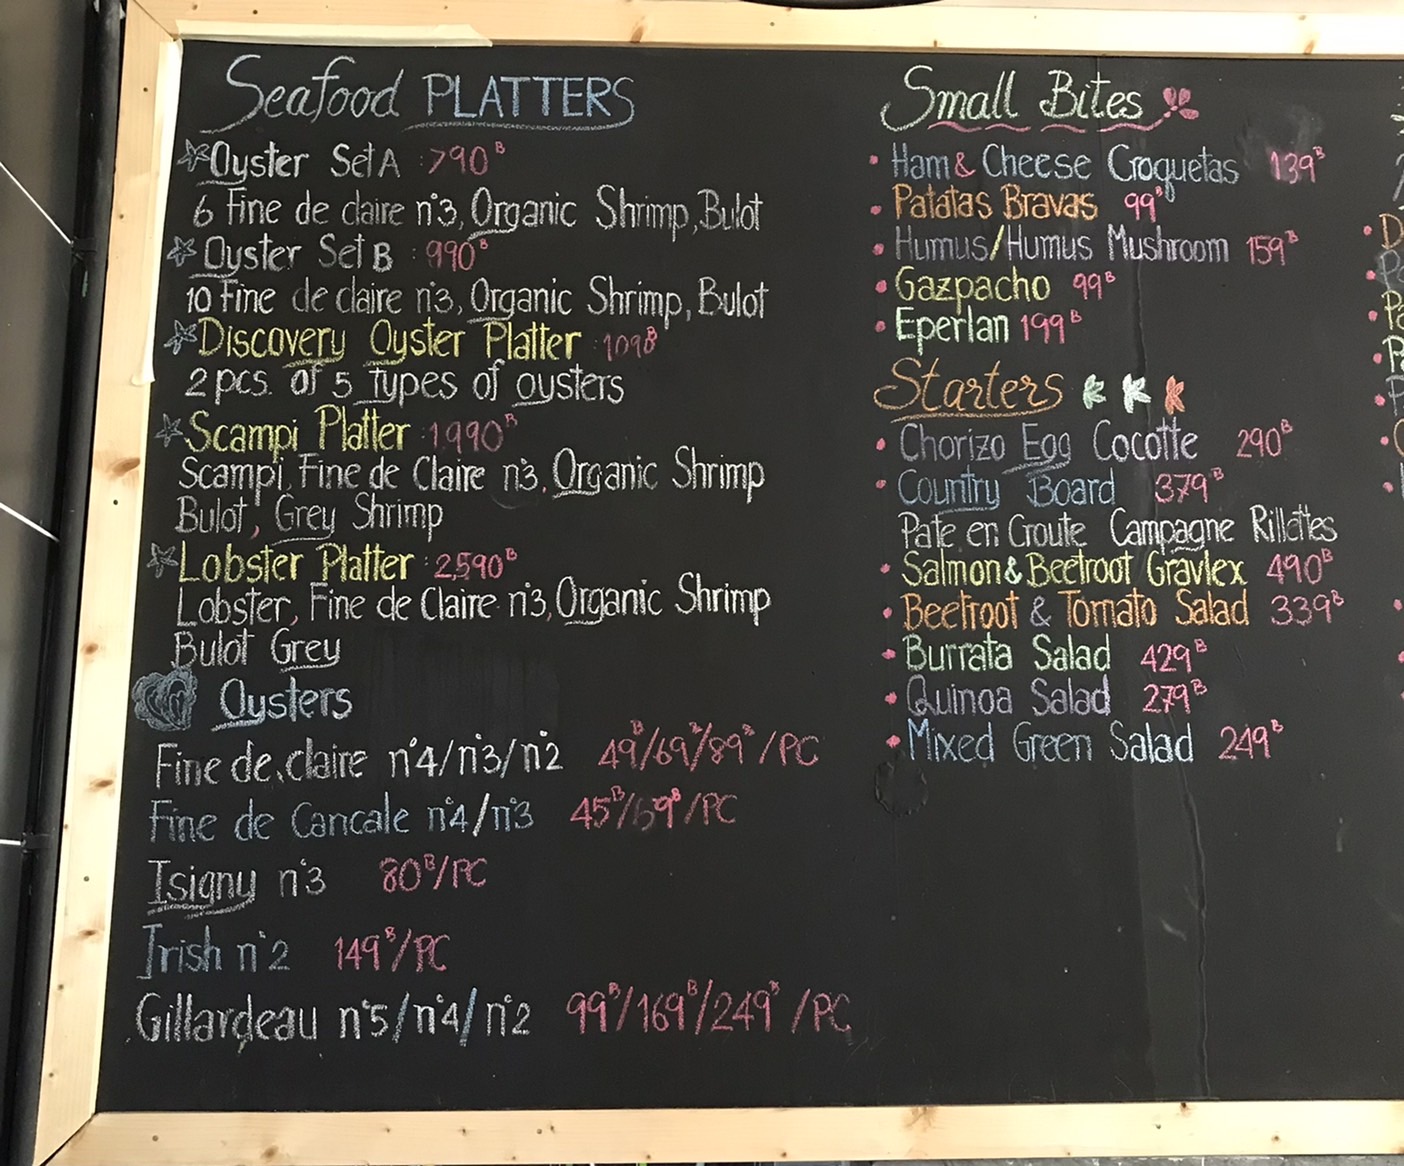 Seafood PLATTERS
Oyster Set A : 790฿
6 Fine de claire n°3, Organic Shrimp, Bulot
Oyster Set B : 990฿
10 Fine de claire n°3, Organic Shrimp, Bulot
Discovery Oyster Platter : 1090฿
2 pcs. of 5 types of oysters
Scampi Platter : 1990฿
Scampi, Fine de Claire n°3, Organic Shrimp
Bulot, Grey Shrimp
Lobster Platter : 2,590฿
Lobster, Fine de Claire n°3, Organic Shrimp
Bulot Grey
Oysters
Fine de claire n°4/n°3/n°2 49฿/69฿/89฿/PC
Fine de Cancale n°4/n°3 45฿/59฿/PC
Isigny n°3 80฿/PC
Irish n°2 149฿/PC
Gillardeau n°5/n°4/n°2 99฿/169฿/249฿/PC
Small Bites
Ham & Cheese Croquetas 139฿
Patatas Bravas 99฿
Humus/Humus Mushroom 159฿
Gazpacho 99฿
Eperlan 199฿
Starters
Chorizo Egg Cocotte 290฿
Country Board 379฿
Pate en Croute Campagne Rillettes
Salmon & Beetroot Gravlex 490฿
Beetroot & Tomato Salad 339฿
Burrata Salad 429฿
Quinoa Salad 279฿
Mixed Green Salad 249฿